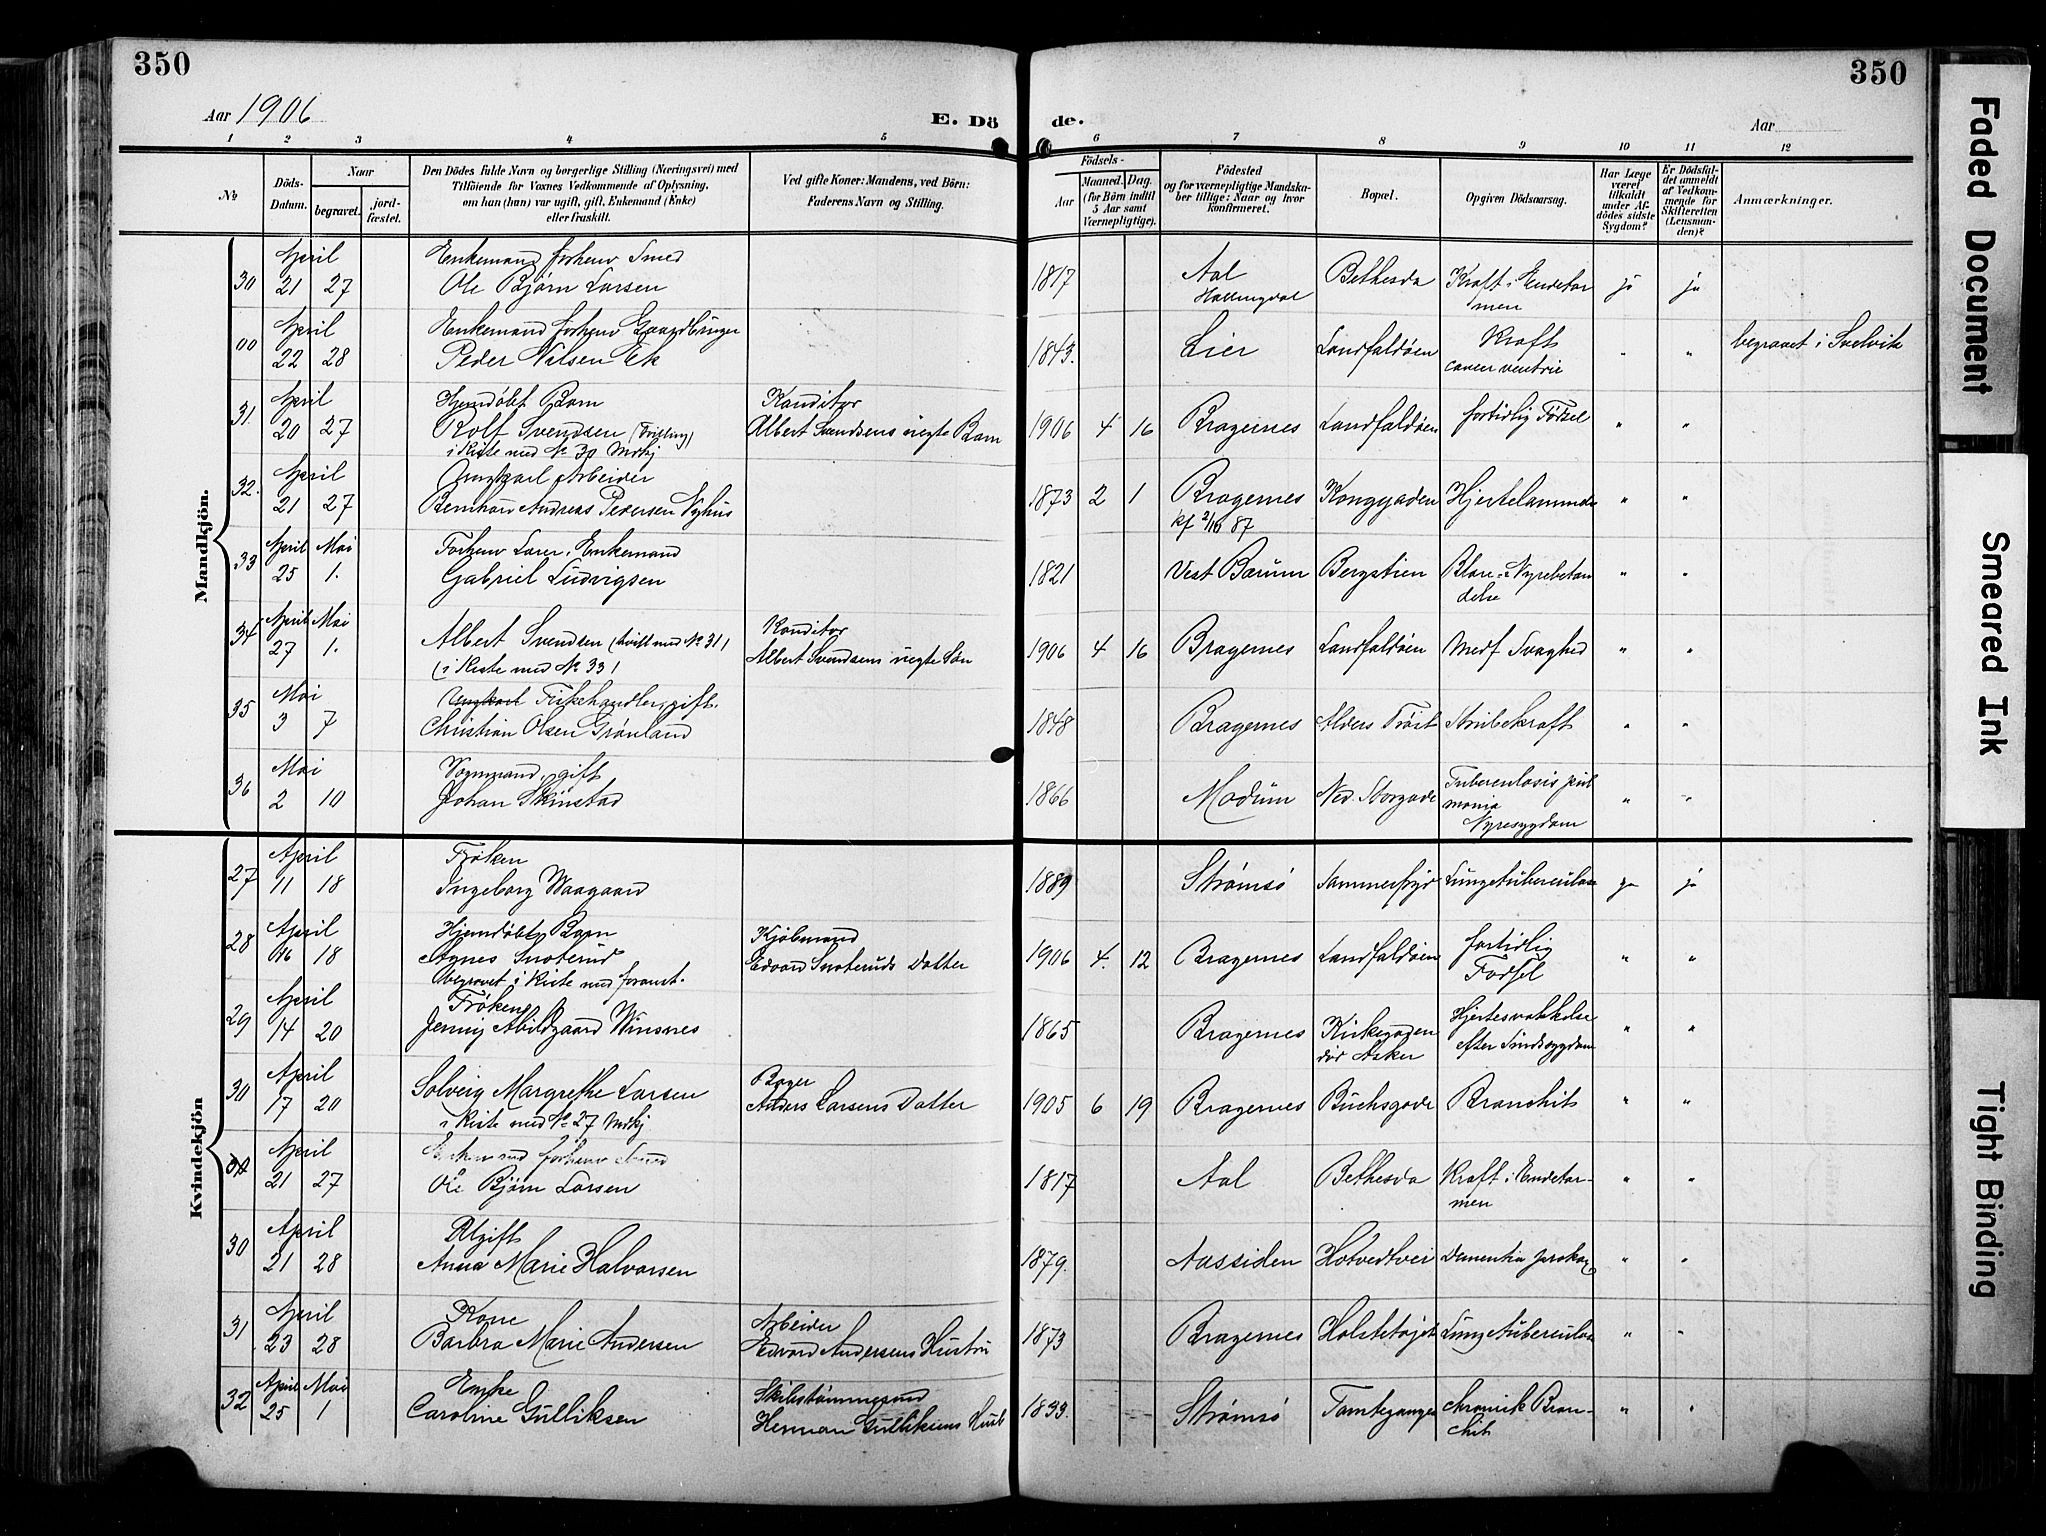 350
350
Aar 1906
E. Dö de.
Aar
1 2 3 4 5 6 7 8 9 10 11 12
№
Döds-Datum.
Naar
begravet.
jord-fæstet.
Den Dödes fulde Navn og borgerlige Stilling (Næringsvei) med
Tilföiende for Voxnes Vedkommende af Oplysning,
om han (hun) var ugift, gift, Enkemand (Enke)
eller fraskilt.
Ved gifte Koner: Mandens, ved Börn:
Faderens Navn og Stilling.
Födsels-
Aar
Maaned. Dag.
(for Börn indtil
5 Aar samt
Værnepligtige).
Födested
og for værnepligtige Mandska-
ber tillige: Naar og hvor
konfirmeret.
Bopæl.
Opgiven Dödsaarsag.
Har Læge
været
tilkaldt
under Af-
dödes sidste
Sygdom?
Er Dödsfal-
det anmeldt
af Vedkom-
mende for
Skifteretten
(Lensman-
den)?
Anmærkninger.
Mandkjön.
30 April 21 27 Enkemand forhenv Smed
Ole Bjørn Larsen 1817 Aal Hallingdal Bethesda Kræft i Endetarmen ja ja
00 April 22 28 Enkemand forhenv Gaardbruger
Peder Nilsen Ek 1843. Lier Landfaldøen Kræft cancer ventric " " begravet i Svelvik
31. April 20 27 Hjemdøbt Barn
Rolf Svendsen (Tvilling)
i Kiste med № 30 Mdkj
Konditor
Albert Svendsens uægte Barn 1906 4 16 Bragernes Landfaldøen fortidlig Fødsel " "
32. April 21 27 Ungkarl Arbeider
Bernhard Andreas Pedersen Nyhus 1873 2 1 Bragernes
kf 2/10 87 Konggaden Hjertelammelse " "
33 April 25 Mai 1. Forhenv Lærer, Enkemand
Gabriel Ludvigsen 1821 Vest Bærum Bergstien Blære- i Nyrebetændelse " "
34 April 27 Mai 1. Albert Svendsen (tvill med № 31)
(i Kiste med № 33)
Konditor
Albert Svendsens uægte Søn 1906 4 16 Bragernes Landfaldøen Medf Svaghed " "
35 Mai 3 7 Ungkarl Fiskehandler, gift.
Christian Olsen Grønland 1848 Bragernes Alders Trøst Strubekræft " "
36 Mai 2 10 Vognmand, gift
Johan Skinstad 1866 Modum Ned. Storgade Tuberculosis pulmonia
Nyresygdom " "
Kvindekjön
27 April 11 18 Frøken
Ingeborg Waagaard 1889 Strømsø Sommerfryd Lungetuberculose ja ja
28 April 16 18 Hjemdøbt Barn
Agnes Snoterud
begravet i Kiste med foranst.
Kjøbmand
Edvard Snoteruds Datter 1906 4. 12 Bragernes Landfaldøen fortidlig Fødsel " "
29 April 14 20 Frøken
Jenny Abildgaard Winsnes 1865 Bragernes Kirkegaden
død Asker Hjertesvækkelse
efter Sindssygdom " "
30 April 17 20 Solveig Margrethe Larsen
i Kiste med № 27 Mdkj
Bager
Anders Larsens Datter 1905 6 19 Bragernes Buchsgade Bronchit " "
April 21 27 Enkemand forhenv Smed
Ole Bjørn Larsen 1817 Aal Bethesda Kræft i Endetarmen " "
30 April 21 28 Ugift
Anna Marie Halvorsen 1879. Aassiden Hotvedtvei Dementia " "
31 April 23 28 Kone
Barbra Marie Andersen
Arbeider
Edvard Andersens Hustru 1873 Bragernes Holstetøjet Lungetuberculose " "
32 April 25 Mai 1 Enke
Caroline Gulliksen
Skibstømmermd
Herman Gulliksens Hust 1833. Strømsø Tomtegangen chronisk Bronchit " "
Faded Document
Smeared Ink
Tight Binding